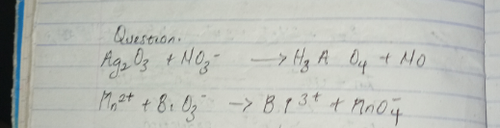 Question.
Ag₂O₃ + NO₃⁻ → H₃A O₄ + NO
Mn²⁺ + BiO₃⁻ → Bi³⁺ + MnO₄⁻